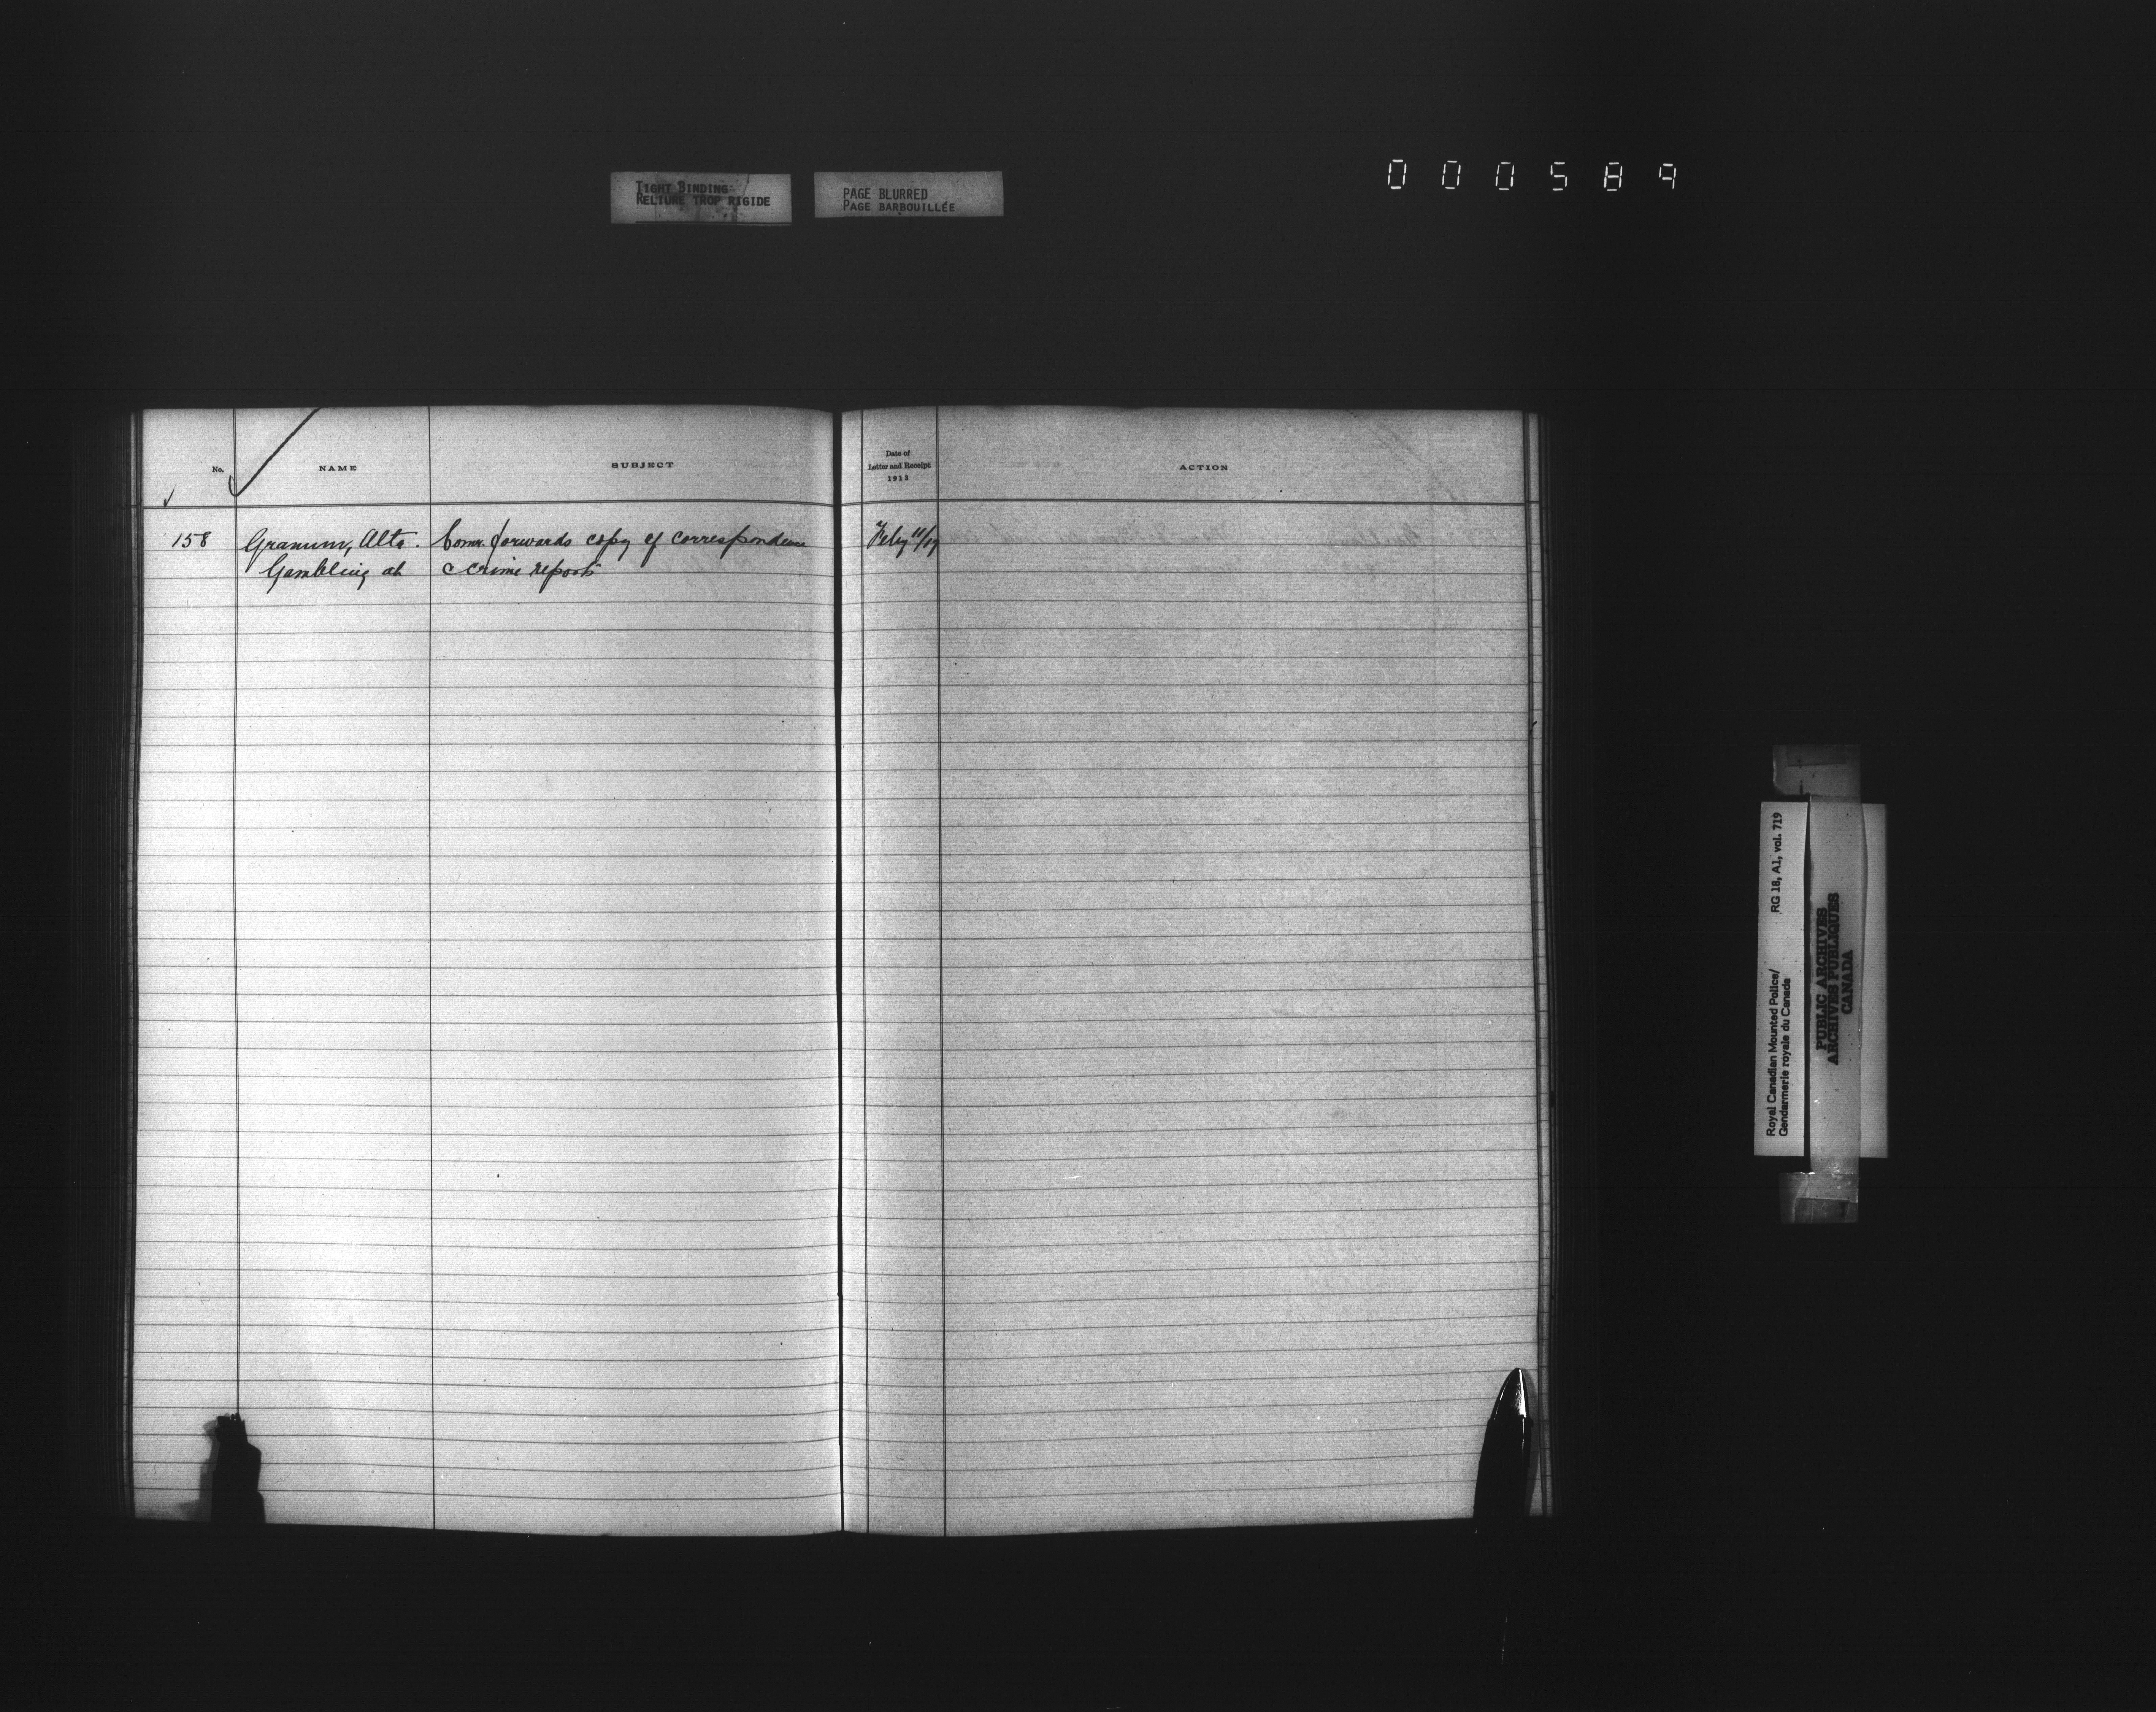 000589
TIGHT BINDING
RELIURE TROP RIGIDE
PAGE BLURRED
PAGE BARBOUILLÉE
No.
NAME
SUBJECT
Date of
Letter and Receipt
1918
ACTION
158 Granum, Alta. Comr. forwards copy of correspondence Feby 11/19
Gambling at & crime reports
Royal Canadian Mounted Police/ RG 18, A1, vol. 719
Gendarmerie royale du Canada
PUBLIC ARCHIVES
ARCHIVES PUBLIQUES
CANADA